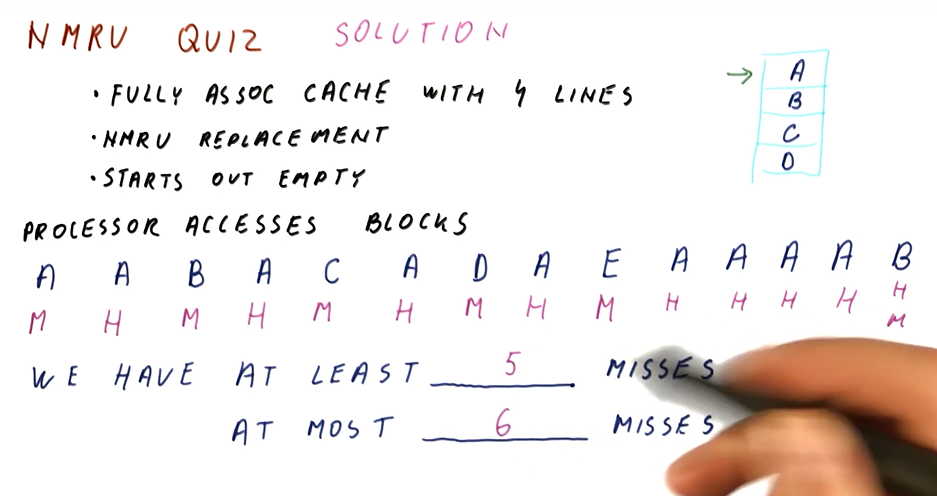 NMRU QUIZ SOLUTION
• FULLY ASSOC CACHE WITH 4 LINES
• NMRU REPLACEMENT
• STARTS OUT EMPTY
→ A
B
C
D
PROCESSOR ACCESSES BLOCKS
A A B A C A D A E A A A A B
M H M H M H M H M H H H H H
M
WE HAVE AT LEAST 5 MISSES
AT MOST 6 MISSES